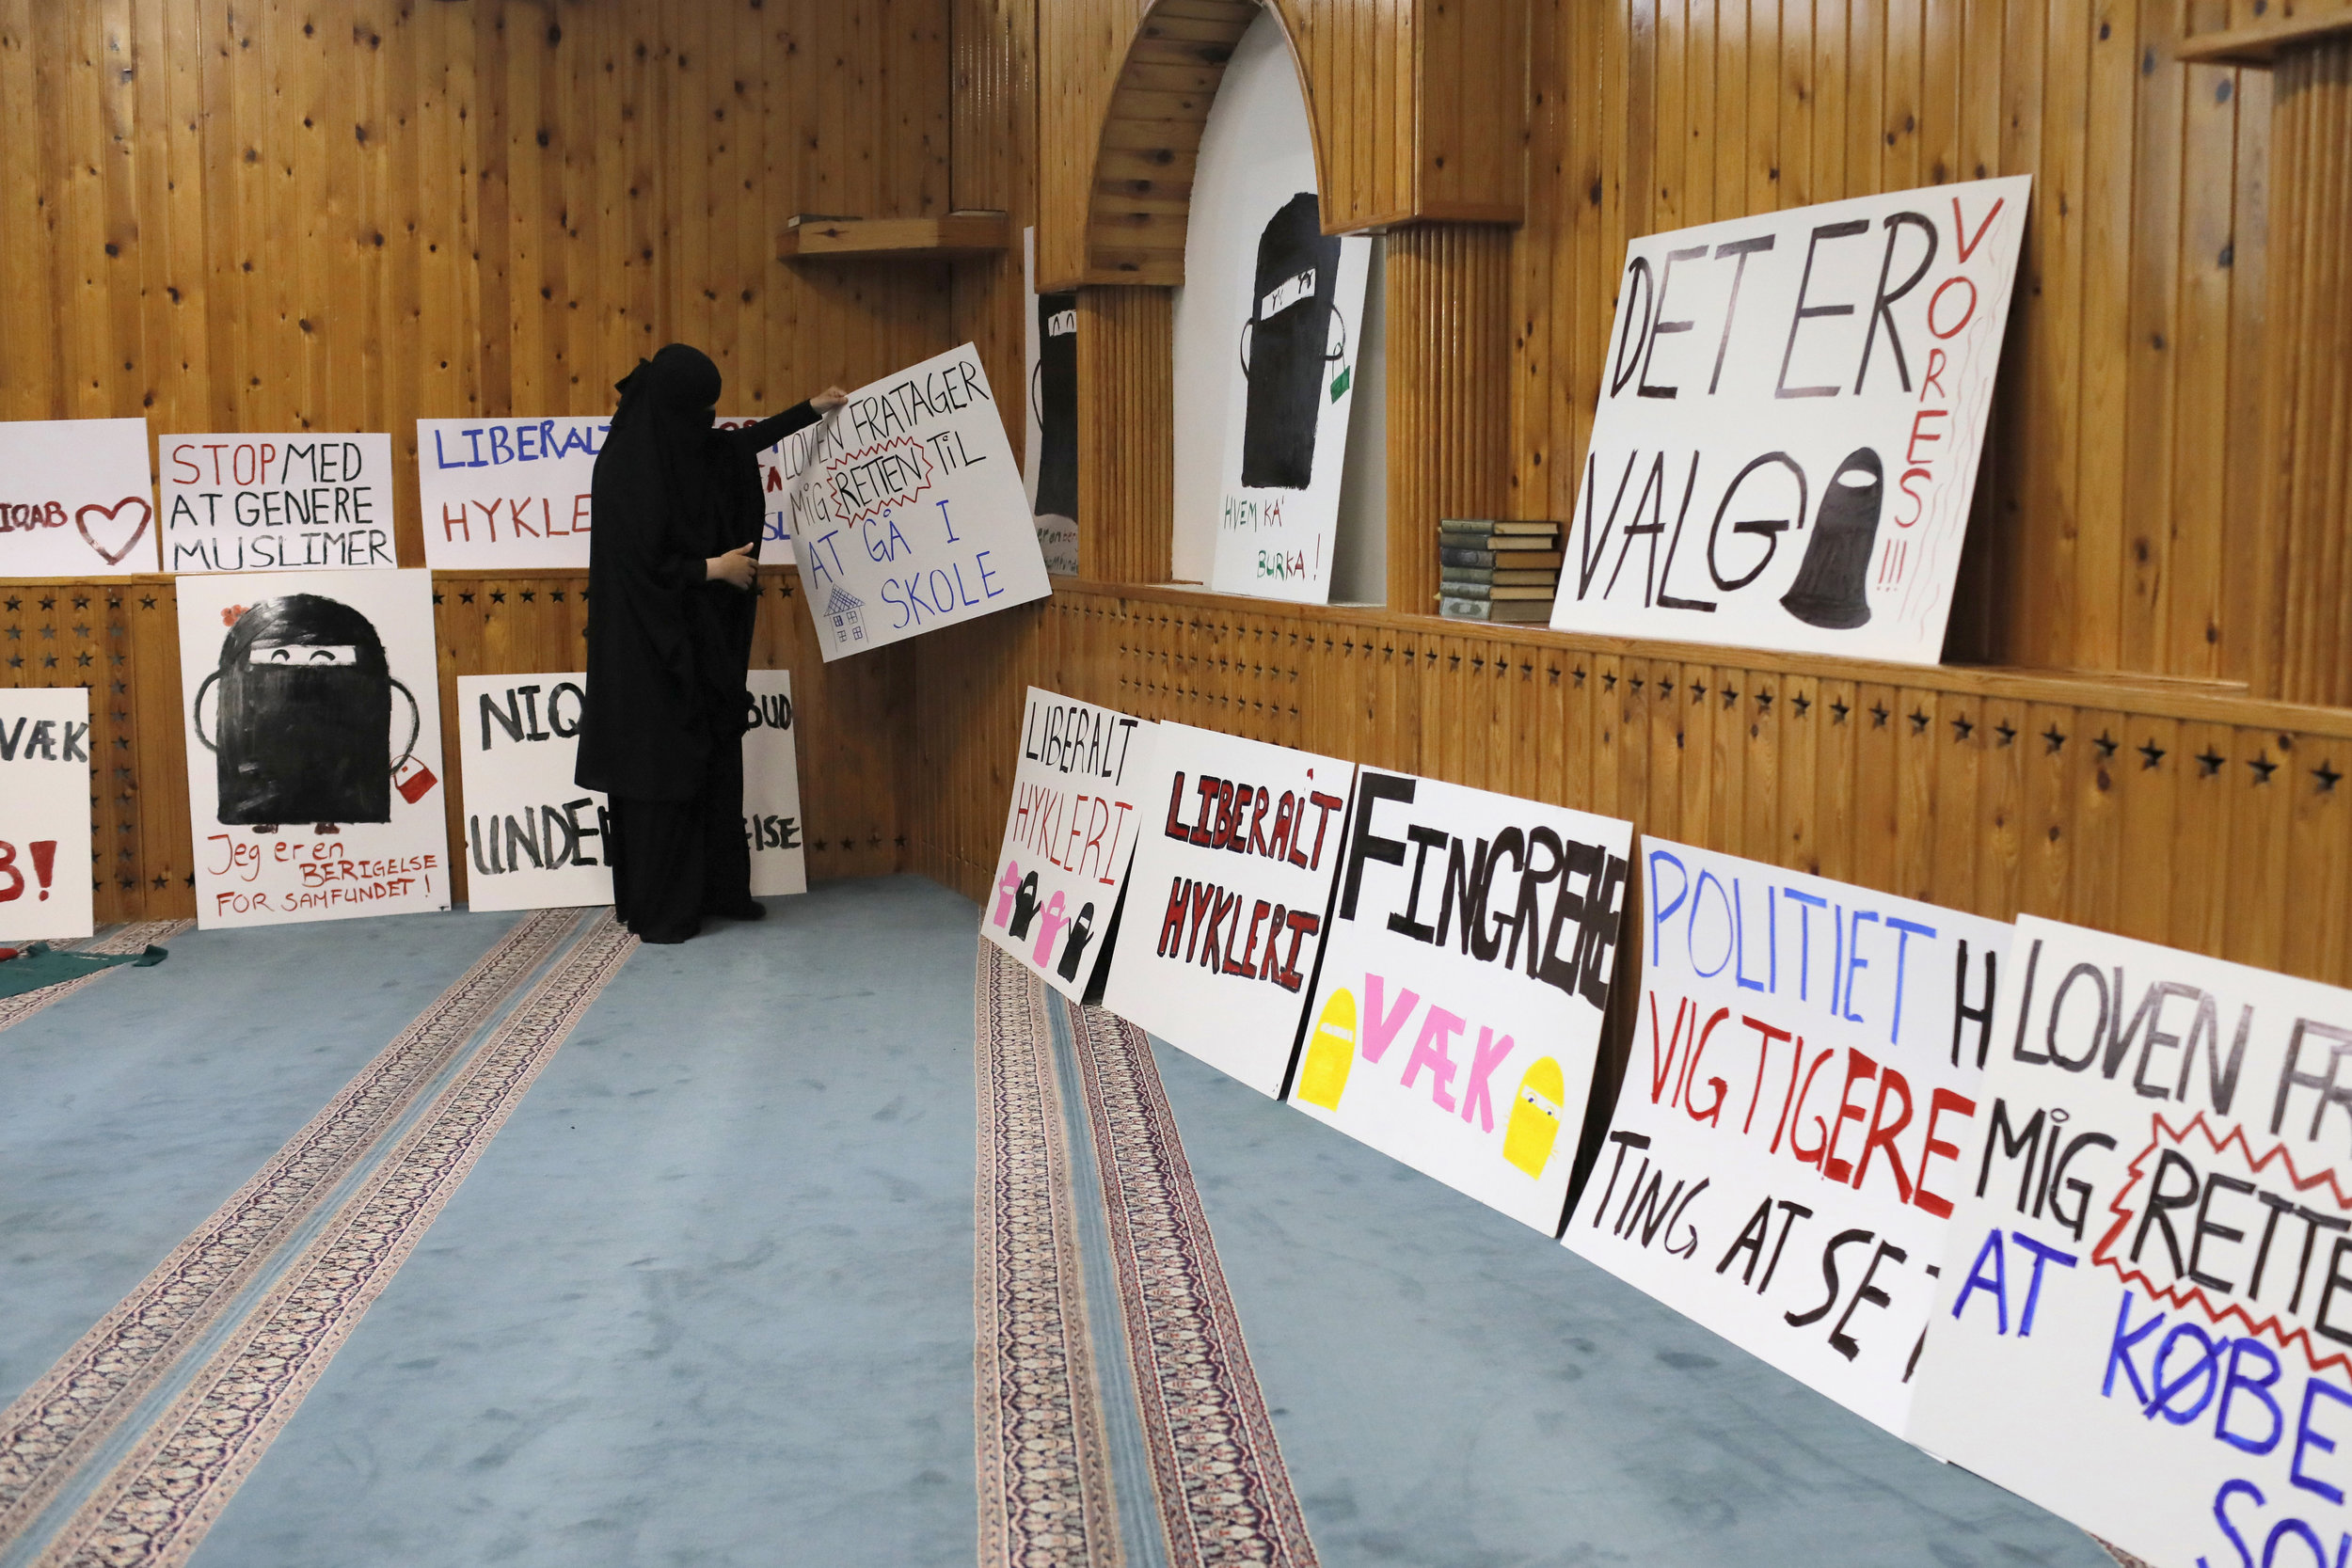 IQAB
STOP MED
AT GENERE
MUSLIMER
LIBERALT
HYKLE
LOVEN FRATAGER
MIG RETTEN TIL
AT GÅ I
SKOLE
HVEM KA'
BURKA!
DET ER
VORES!!!
VALG
VÆK
B!
Jeg er en
BERIGELSE
FOR SAMFUNDET!
NIQ
BUD
UNDE
ELSE
LIBERALT
HYKLERI
LIBERALT
HYKLERI
FINGRENE
VÆK
POLITIET H
VIGTIGERE
TING AT SE
LOVEN FR
MIG RETTE
AT KØBE
SO